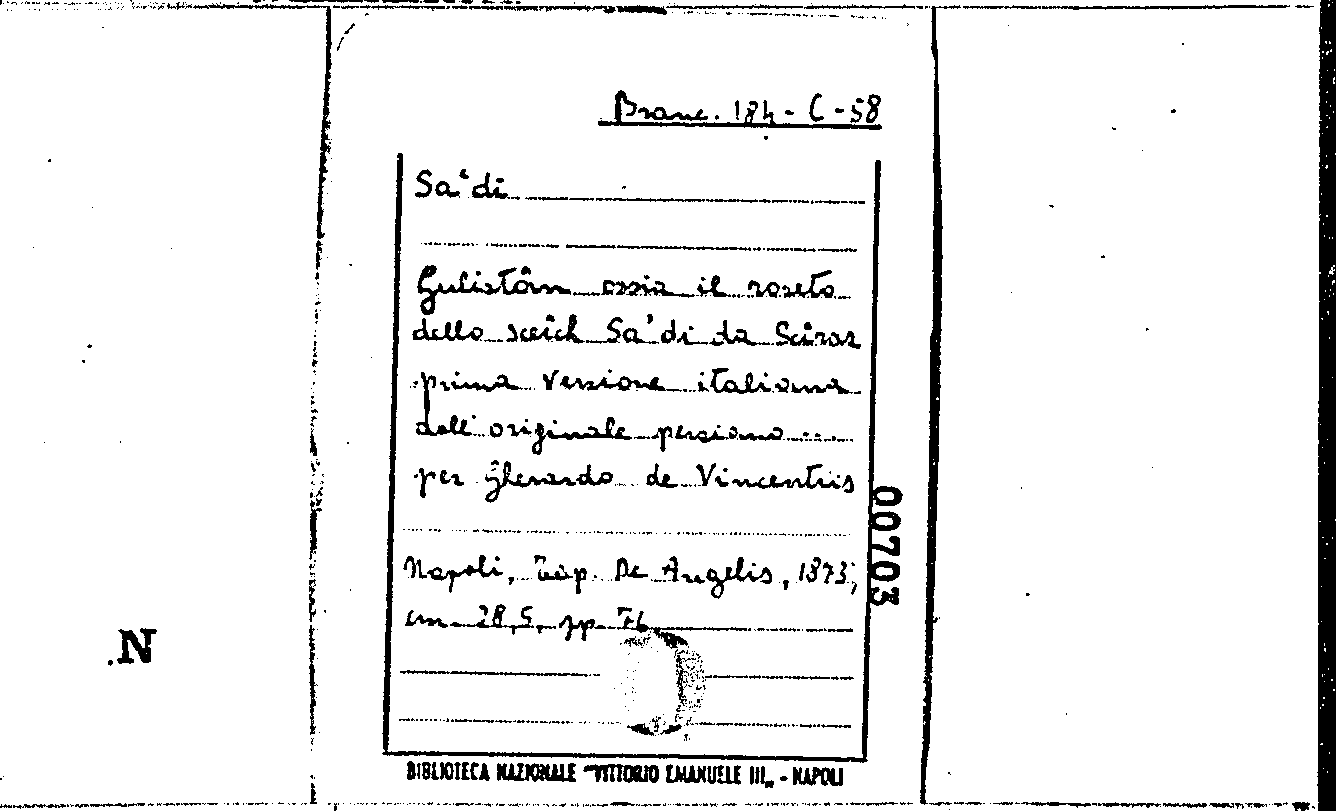 Branc. 184 - C - 58
Sa'di
Gulistân ossia il roseto
dello sceich Sa'di da Sciraz
prima versione italiana
dall'originale persiano ...
per Gherardo de Vincentiis
00703
Napoli, Tip. De Angelis, 1873;
cm. 28,5, pp. 76
N.
BIBLIOTECA NAZIONALE "VITTORIO EMANUELE III„ - NAPOLI